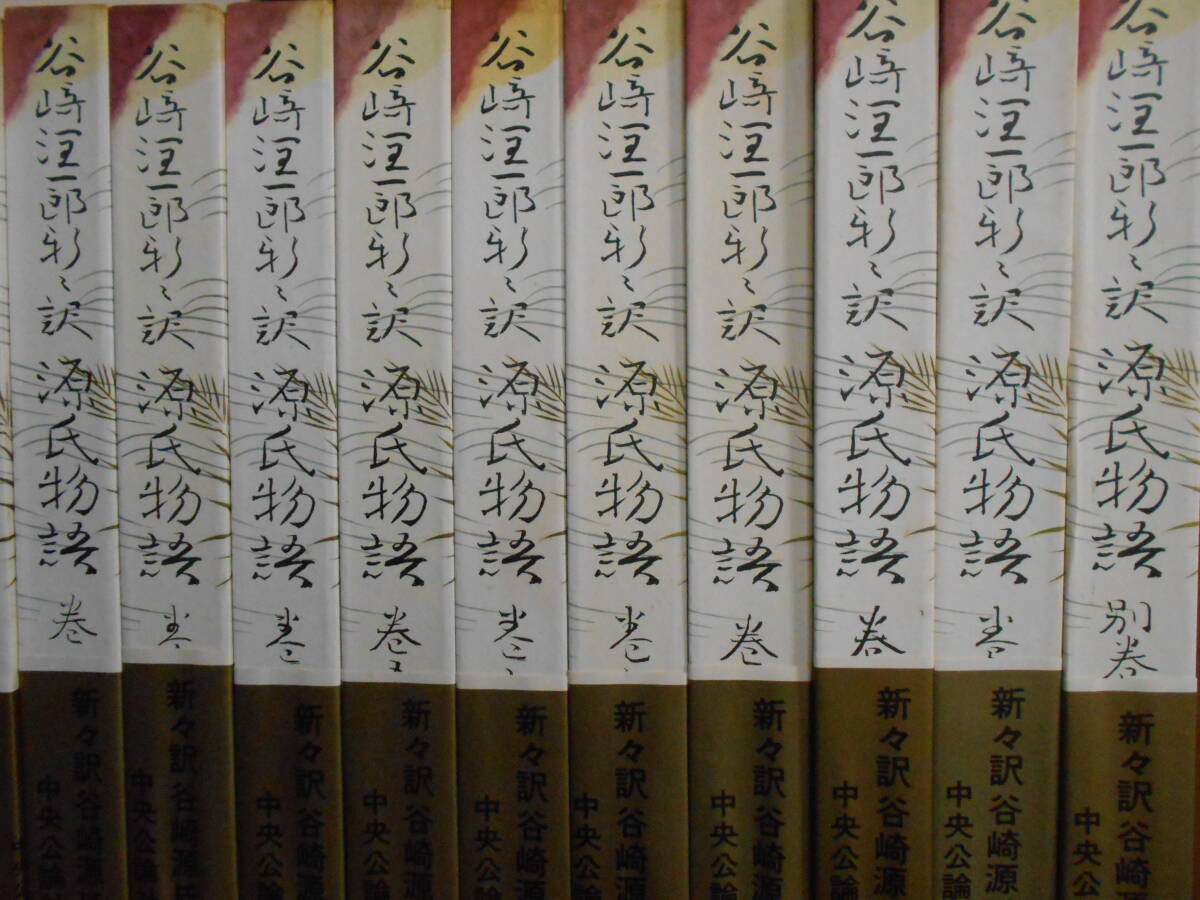 谷崎潤一郎新々訳 源氏物語 巻
新々訳谷崎源
中央公論
谷崎潤一郎新々訳 源氏物語 巻
新々訳谷崎源
中央公論
谷崎潤一郎新々訳 源氏物語 巻
新々訳谷崎源
中央公論
谷崎潤一郎新々訳 源氏物語 巻
新々訳谷崎源
中央公論
谷崎潤一郎新々訳 源氏物語 巻
新々訳谷崎源
中央公論
谷崎潤一郎新々訳 源氏物語 巻
新々訳谷崎源
中央公論
谷崎潤一郎新々訳 源氏物語 巻
新々訳谷崎源
中央公論
谷崎潤一郎新々訳 源氏物語 巻
新々訳谷崎源
中央公論
谷崎潤一郎新々訳 源氏物語 巻
新々訳谷崎源
中央公論
谷崎潤一郎新々訳 源氏物語 別巻
新々訳谷崎源
中央公